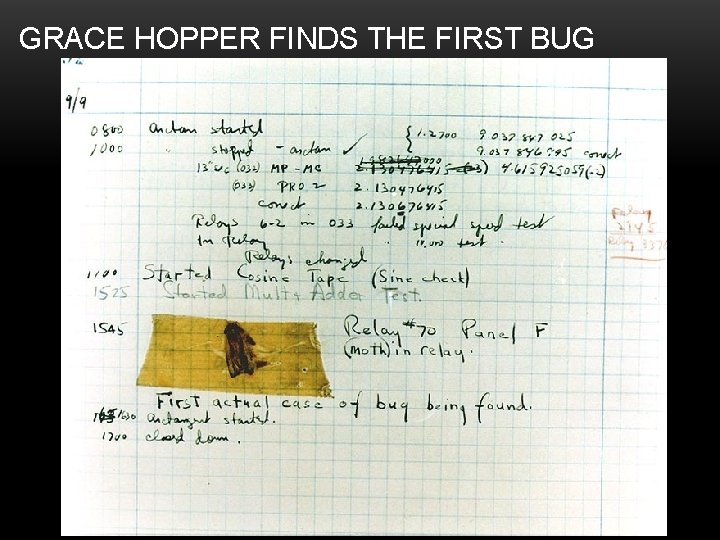 GRACE HOPPER FINDS THE FIRST BUG
9/9
0800 antan started
1000 " stopped - antan ✓ { 1.2700 9.037 847 025
9.037 846 995 conect
13"uc (033) MP-MC 2.130476415 (-3) 4.615925059(-2)
(033) PRO 2 2.130476415
conect 2.130676415
Relays 6-2 in 033 failed special speed test
in Relay " 10,000 test .
Relay
2145
Relay 3370
Relays changed
1100 Started Cosine Tape (Sine check)
1525 Started Mult+ Adder Test.
1545 Relay #70 Panel F
(moth) in relay.
First actual case of bug being found.
1630 antangent started.
1700 closed down.